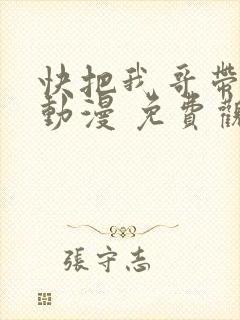 快把我哥帶
動漫 免費觀
張守志